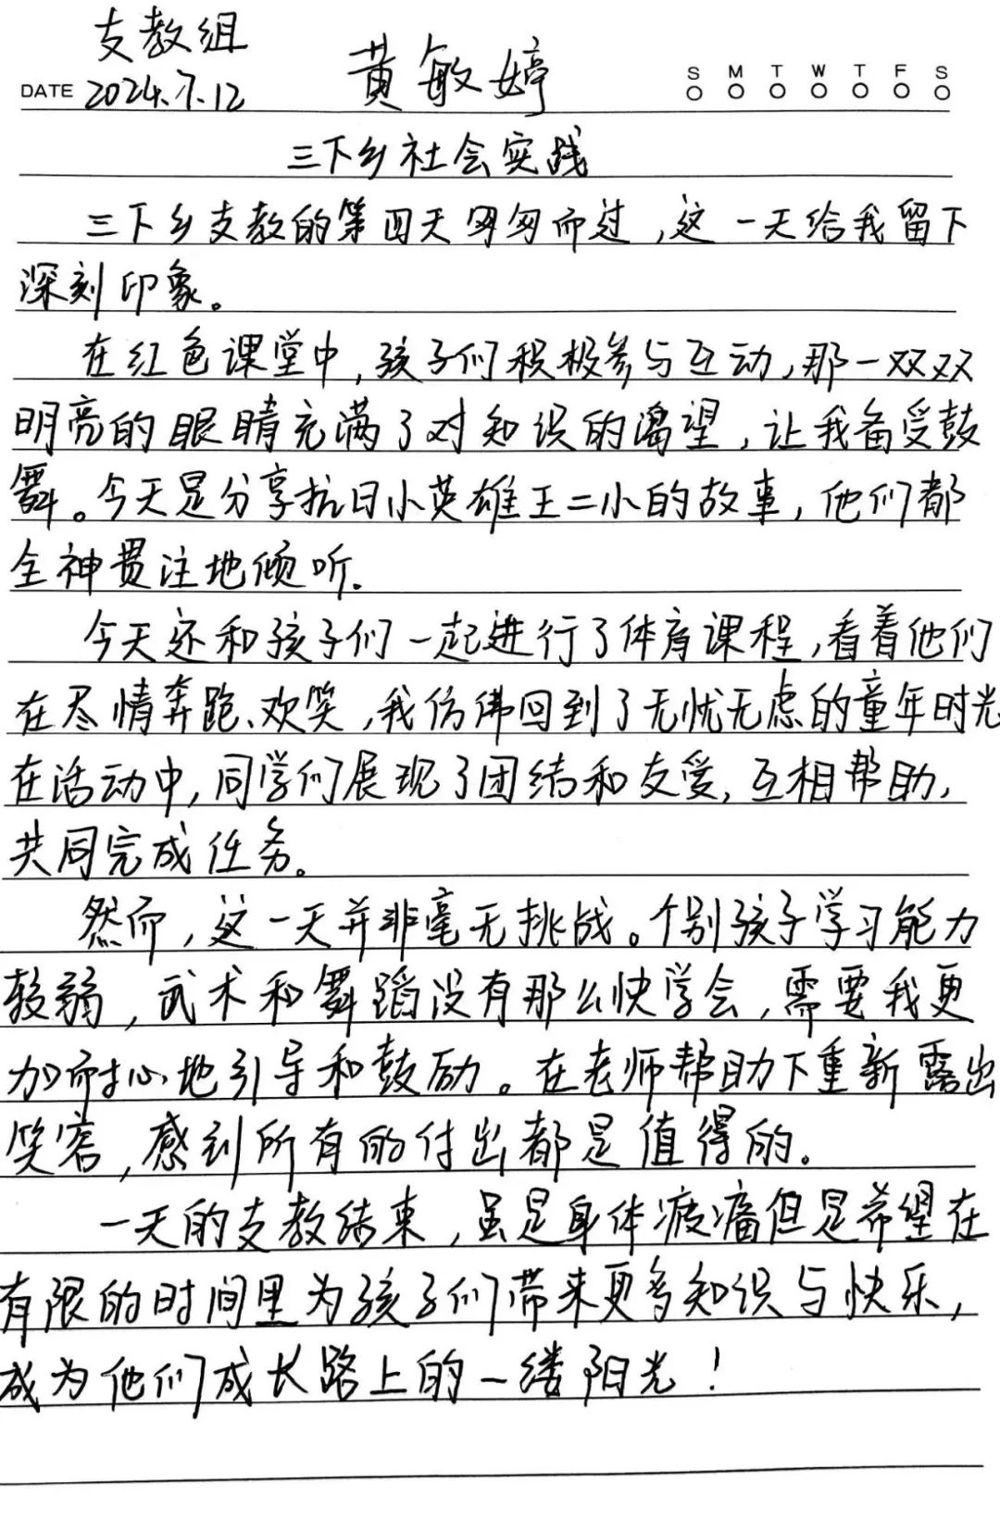 支教组
DATE 2024.7.12 黄敏婷 S M T W T F S
三下乡社会实践
三下乡支教的第四天匆匆而过,这一天给我留下
深刻印象。
在红色课堂中,孩子们积极参与互动,那一双双
明亮的眼睛充满了对知识的渴望,让我备受鼓
舞。今天是分享抗日小英雄王二小的故事,他们都
全神贯注地倾听.
今天还和孩子们一起进行了体育课程,看着他们
在尽情奔跑、欢笑,我仿佛回到了无忧无虑的童年时光
在活动中,同学们展现了团结和友爱,互相帮助,
共同完成任务。
然而,这一天并非毫无挑战。个别孩子学习能力
较弱,武术和舞蹈没有那么快学会,需要我更
加耐心地引导和鼓励。在老师帮助下重新露出
笑容,感到所有的付出都是值得的。
一天的支教结束,虽是身体疲惫但是希望在
有限的时间里为孩子们带来更多知识与快乐,
成为他们成长路上的一缕阳光!